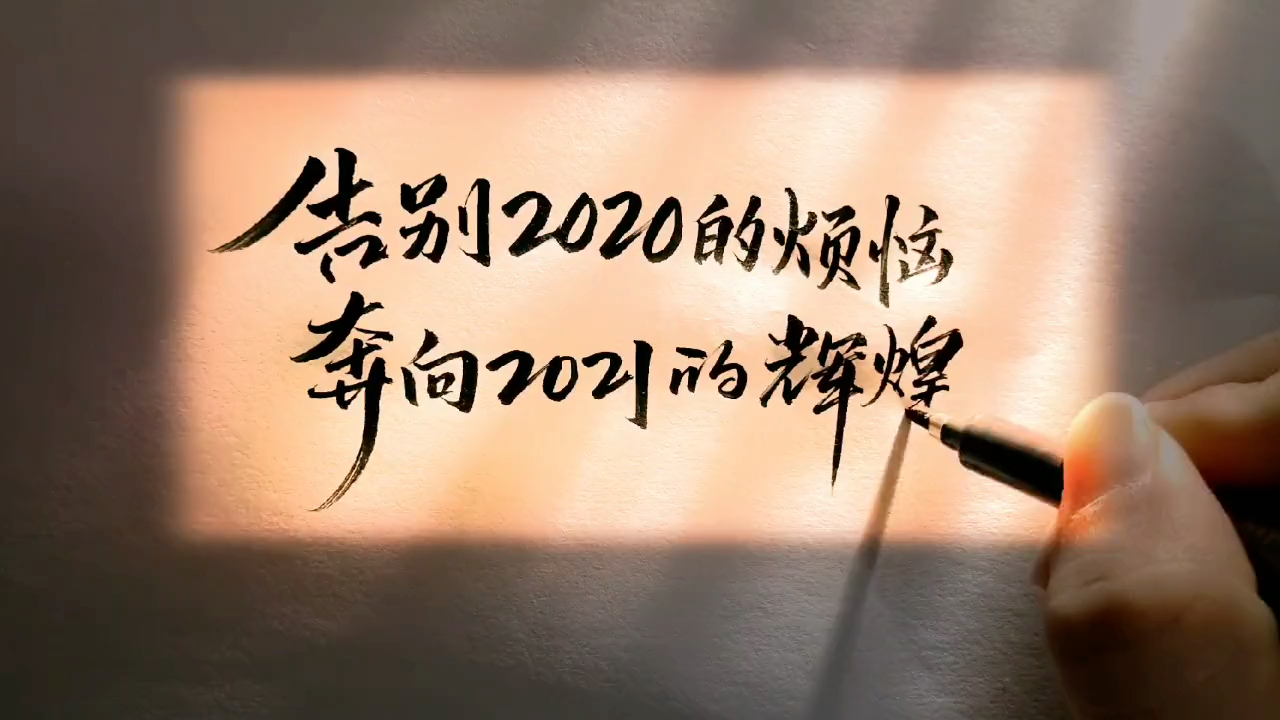 告别2020的烦恼
奔向2021的辉煌